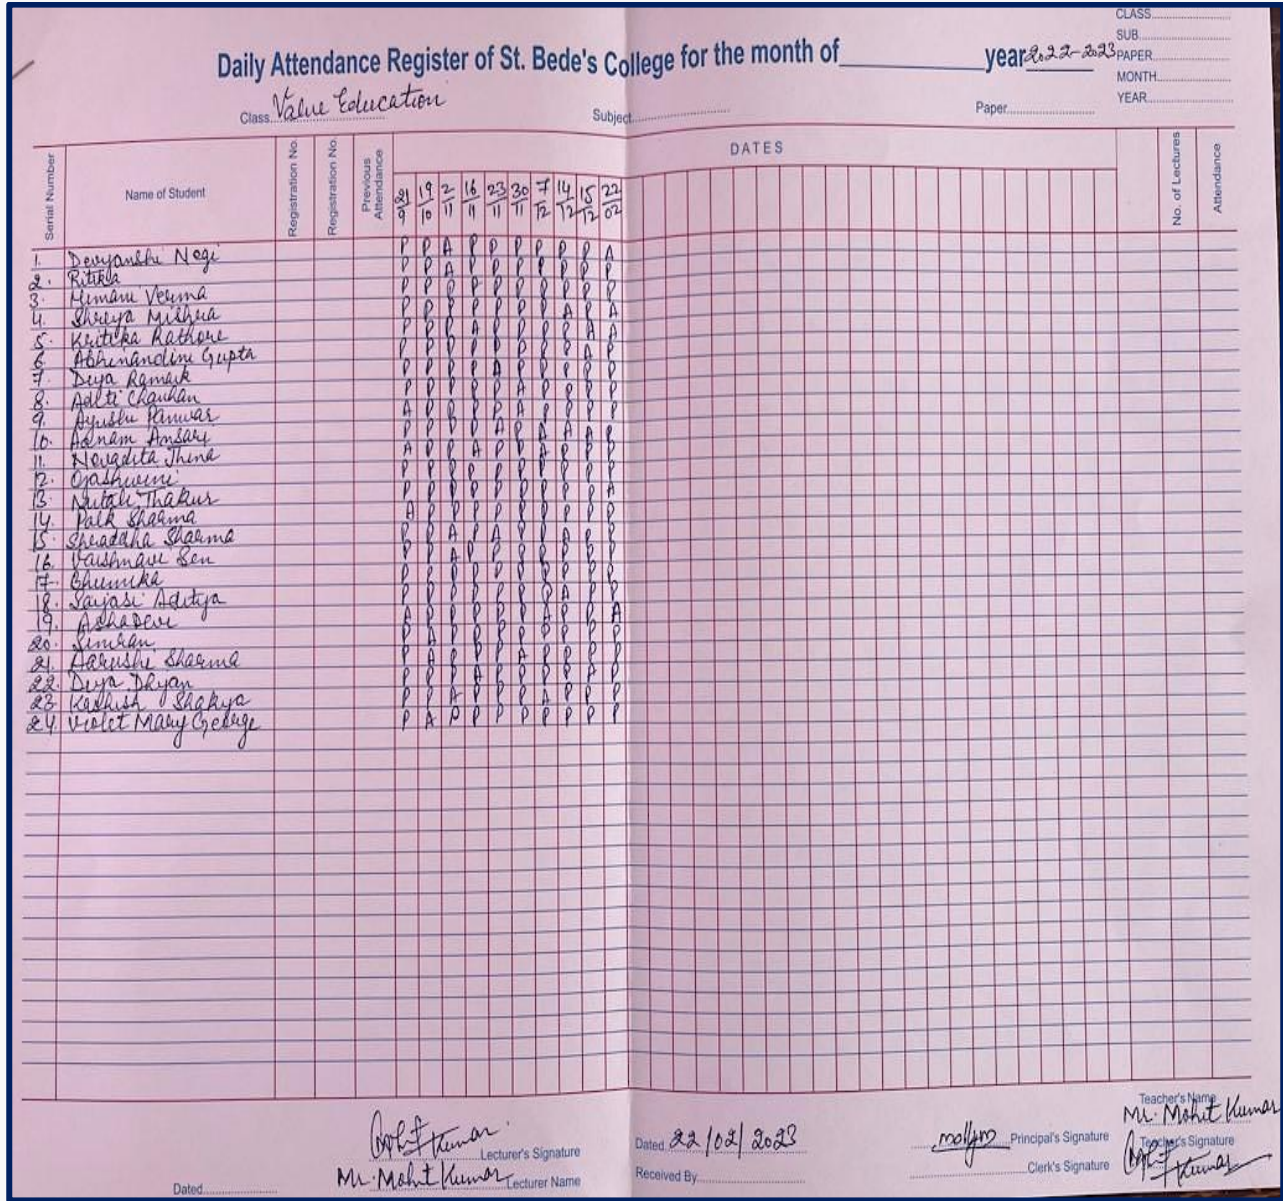 CLASS
SUB
Daily Attendance Register of St. Bede's College for the month of year 2022-2023 PAPER
MONTH
YEAR
Class Value Education Subject Paper
Serial Number Name of Student Registration No. Registration No. Previous Attendance DATES No. of Lectures Attendance
21/9 19/10 2/11 16/11 23/11 30/11 7/12 14/12 15/12 22/02
1. Devyanshi Negi P P A P P P P P P A
2. Ritika P P A P P P P P P P
3. Himani Verma P P P P P P P P P P
4. Shreya Mishra P P P P P P P A P A
5. Kritika Rathore P P P A P P P P A A
6. Abhinandini Gupta P P P P P P P P A P
7. Diya Ramaik P P P P A P P P P P
8. Aditi Chauhan P P P P P A P P P P
9. Ayushi Panwar A P P P P A P P P P
10. Adnam Ansari P P P P A P A A A P
11. Novadita Jhina A P P A P P A P P P
12. Ojashwini P P P P P P P P P P
13. Mitali Thakur P P P P P P P P P A
14. Palk Sharma A P P P P P P P P P
15. Shraddha Sharma P P A P A P P A P P
16. Vaishnavi Sen P P A P P P P P P P
17. Bhumika P P P P P P P P P P
18. Sayasi Aditya P P P P P P P A P P
19. Asha Devi A P P P P P A P P A
20. Simran P A P P P P P P P P
21. Aarushi Sharma P A P P P A P P P P
22. Diya Dhyan P P P A P P P P A P
23 Kashish Shakya P P A P P P A P P P
24. Violet Mary George P A P P P P P P P P
Teacher's Name
Mr. Mohit Kumar
Mohit Kumar Lecturer's Signature Dated 22/02/2023 Principal's Signature Teacher's Signature
Dated Mr. Mohit Kumar Lecturer Name Received By Clerk's Signature Mohit Kumar